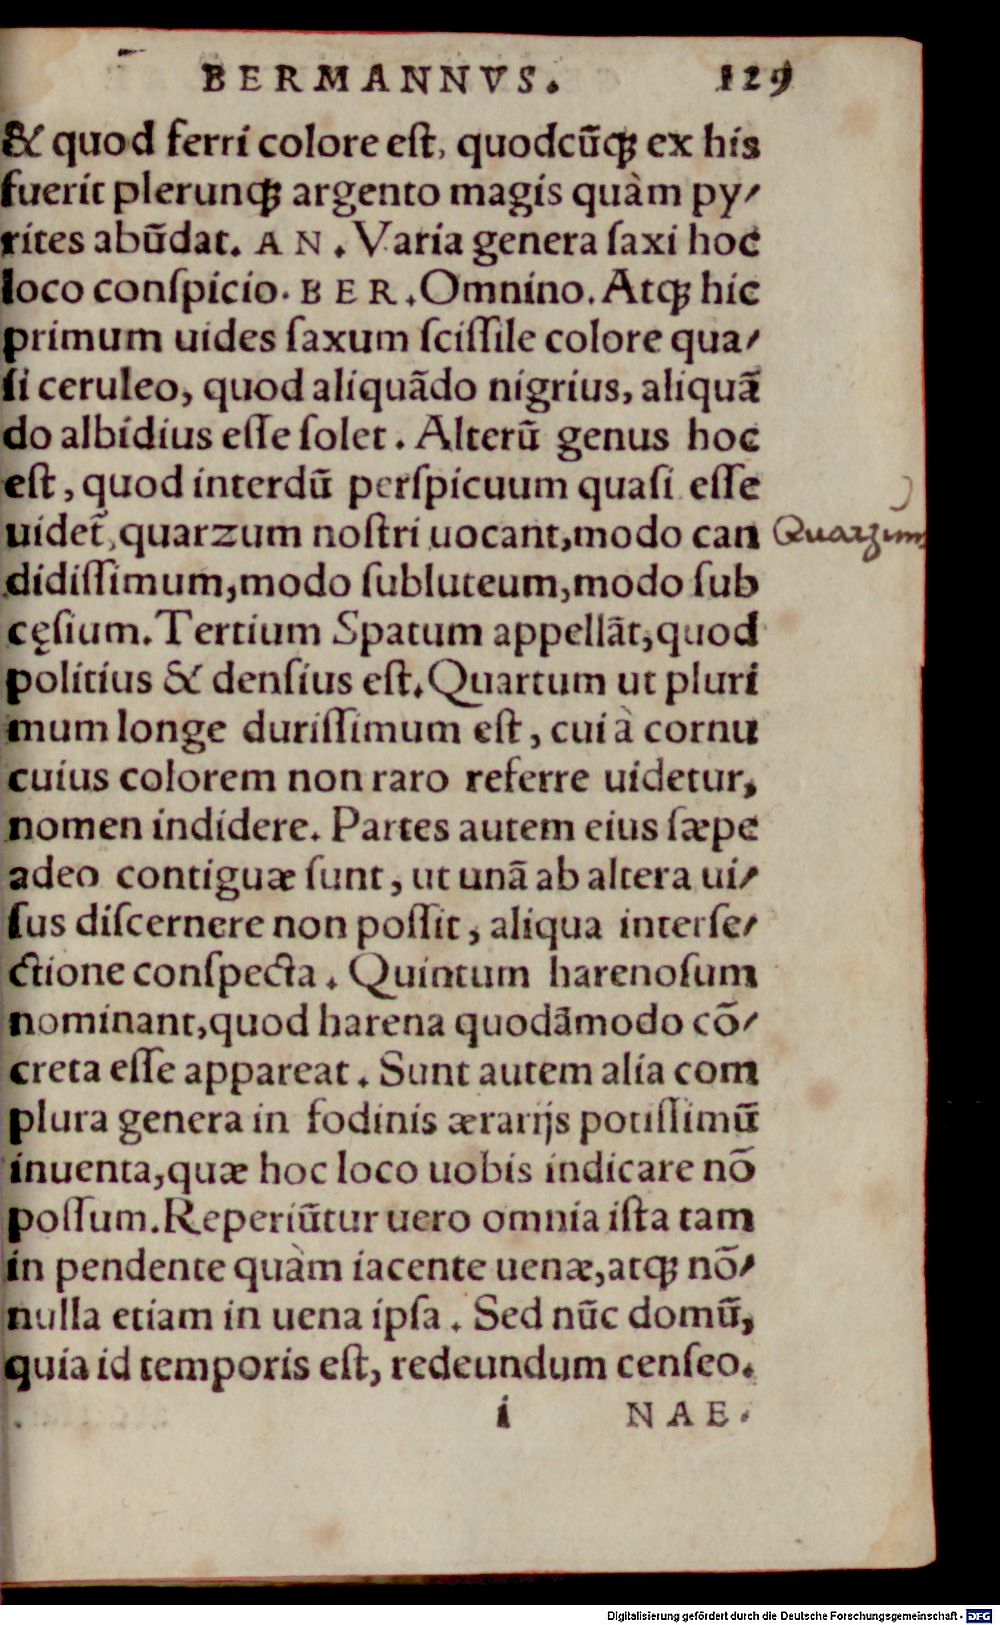 BERMANNVS. 129
& quod ferri colore eſt, quodcũq́; ex his
fuerit plerunq́; argento magis quàm py/
rites abũdat. AN. Varia genera ſaxi hoc
loco conſpicio. BER. Omnino. Atq́; hic
primum uides ſaxum ſciſſile colore qua/
ſi ceruleo, quod aliquãdo nigrius, aliquã
do albidius eſſe ſolet. Alterũ genus hoc
eſt, quod interdũ perſpicuum quaſi eſſe
uidet̃, quarzum noſtri uocant, modo can
Quarzum
didiſſimum, modo ſubluteum, modo ſub
cęſium. Tertium Spatum appellãt, quod
politius & denſius eſt. Quartum ut pluri
mum longe duriſſimum eſt, cui à cornu
cuius colorem non raro referre uidetur,
nomen indidere. Partes autem eius ſæpe
adeo contiguæ ſunt, ut unã ab altera ui/
ſus diſcernere non poſſit, aliqua interſe/
ctione conſpecta. Quintum harenoſum
nominant, quod harena quodãmodo cõ/
creta eſſe appareat. Sunt autem alia com
plura genera in fodinis ærarijs potiſſimũ
inuenta, quæ hoc loco uobis indicare nõ
poſſum. Reperiũtur uero omnia iſta tam
in pendente quàm iacente uenæ, atq́; nõ/
nulla etiam in uena ipſa. Sed nũc domũ,
quia id temporis eſt, redeundum cenſeo.
i NAE.
Digitalisierung gefördert durch die Deutsche Forschungsgemeinschaft - DFG